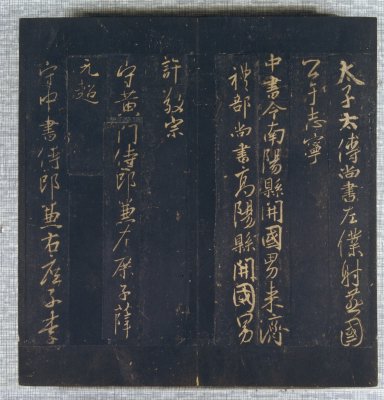 太子太傅尚書左僕射燕國
公于志寧
中書令南陽縣開國男来濟
禮部尚書高陽縣開國男
許敬宗
守黃門侍郎兼左庶子薛
元超
守中書侍郎兼右庶子李